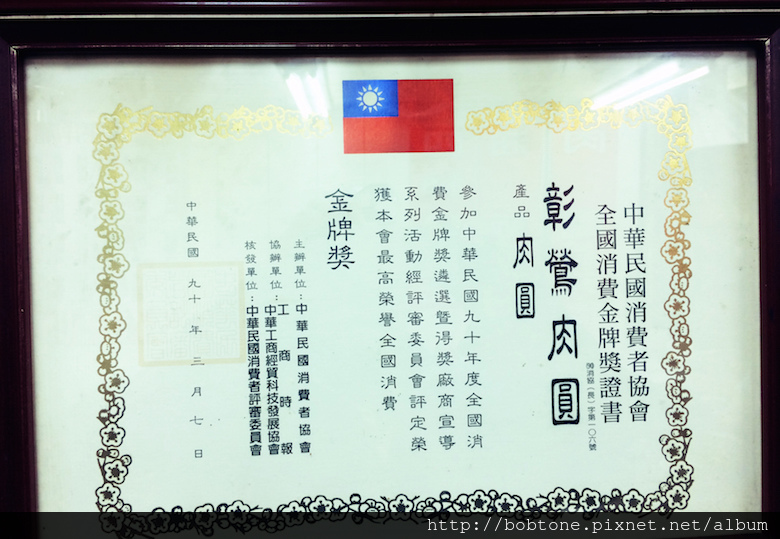 中華民國消費者協會
全國消費金牌獎證書
彰鶯肉圓
產品 肉圓
參加中華民國九十年度全國消
費金牌獎遴選暨得獎廠商宣導
系列活動經評審委員會評定榮
獲本會最高榮譽全國消費
金牌獎
主辦單位：中華民國消費者協會
工商時報
協辦單位：中華工商經貿科技發展協會
核發單位：中華民國消費者評審委員會
中華民國 九十 年 三 月 七 日
http://bobtone.pixnet.net/album